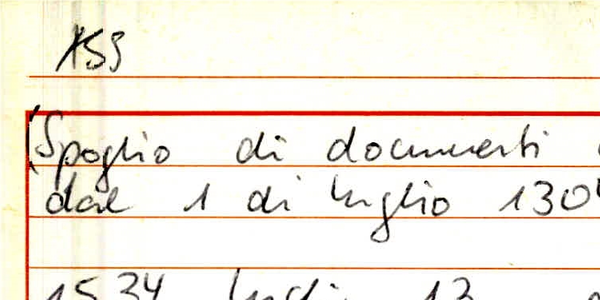 153
(Spoglio di documenti
dal 1 di luglio 130
1534 luglio 13